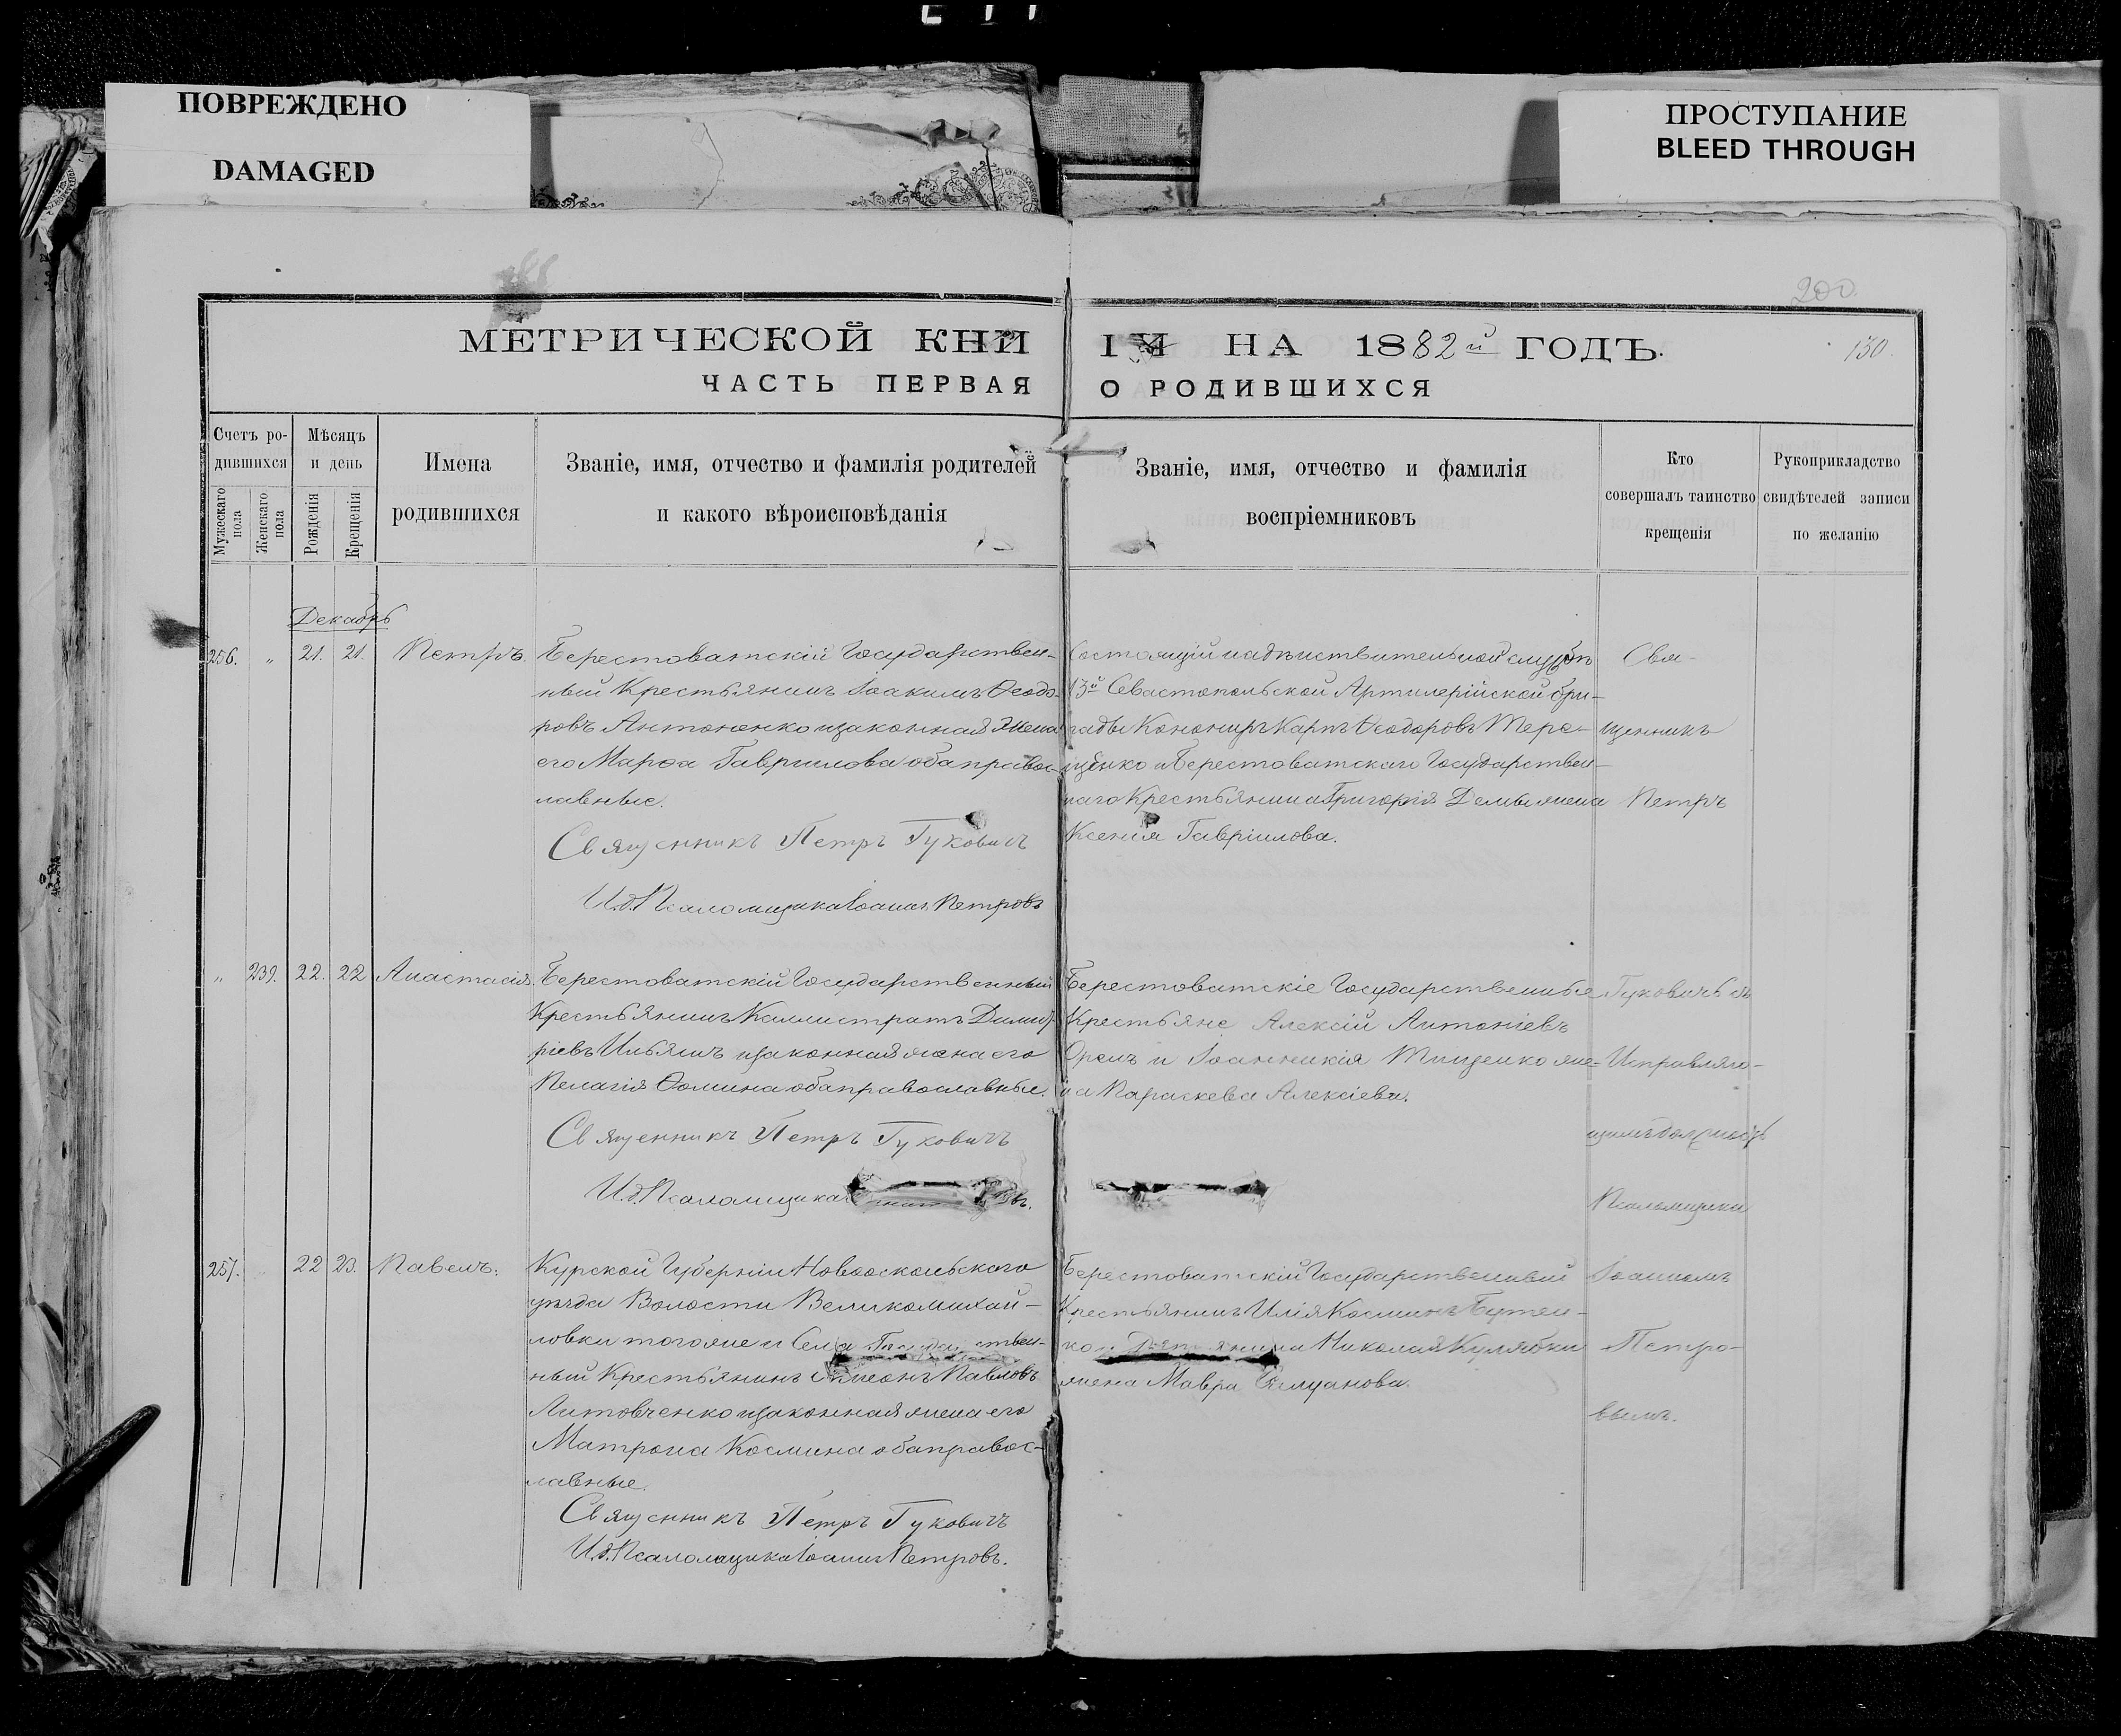 ПОВРЕЖДЕНО
DAMAGED
ПРОСТУПАНИЕ
BLEED THROUGH
200.
130.
МЕТРИЧЕСКОЙ КНИ
ГИ НА 1882й ГОДЪ.
ЧАСТЬ ПЕРВАЯ
О РОДИВШИХСЯ
Счетъ ро-
дившихся
Мужескаго пола
Женскаго пола
Мѣсяцъ
и день
Рожденія
Крещенія
Имена
родившихся
Званіе, имя, отчество и фамилія родителей
и какого вѣроисповѣданія
Званіе, имя, отчество и фамилія
воспріемниковъ
Кто
совершалъ таинство
крещенія
Рукоприкладство
свидѣтелей записи
по желанію
Декабрь
256. „ 21. 21. Петръ.
Берестоватскій Государствен-
ный Крестьянинъ Іоакимъ Ѳеодо-
ровъ Антоненко изаконная жена
его Марѳа Гавриилова обаправос-
лавные.
Священникъ Петръ Гуковичъ
И.д.Псаломщика Іоаннъ Петровъ
Состоящій надѣйствительной службѣ
13й Севастопольской Артилерійской бри-
гады Кононир Карпъ Ѳеодоровъ Тере-
щенко и Берестоватскаго Государствен-
наго Крестьянина Григорія жена
Ксенія Гавріилова.
„ 239. 22. 22 Анастасія
Берестоватскій Государственный
Крестьянинъ Каллистратъ Димит-
ріевъ Ильяшъ изаконная жена его
Пелагія Ѳомина обаправославные.
Священникъ Петръ Гуковичъ
И.д.Псаломщика
Берестоватскіе Государственные
Крестьяне Алексій Антоніевъ
Орелъ и Іоанникія Тищенко же-
на Параскева Алексіева.
257. 22 23. Павелъ.
Курской Губерніи Новооскольскаго
уѣзда Волости Великомихай-
ловки тогоже и Села
ный Крестьянинъ Симеонъ Павловъ
Литовченко изаконная жена его
Матрона Космина обаправос-
лавные.
Священникъ Петръ Гуковичъ
И.д.Псаломщика Іоаннъ Петровъ.
Берестоватскій Государственный
Крестьянинъ Илія Косминъ Бутен-
ко Николая Кулябки
жена Мавра
Свя-
щенникъ
Петръ
Гуковичъ съ
Исправляю-
щимъ должность
Псаломщика
Іоанномъ
Петро-
вымъ.